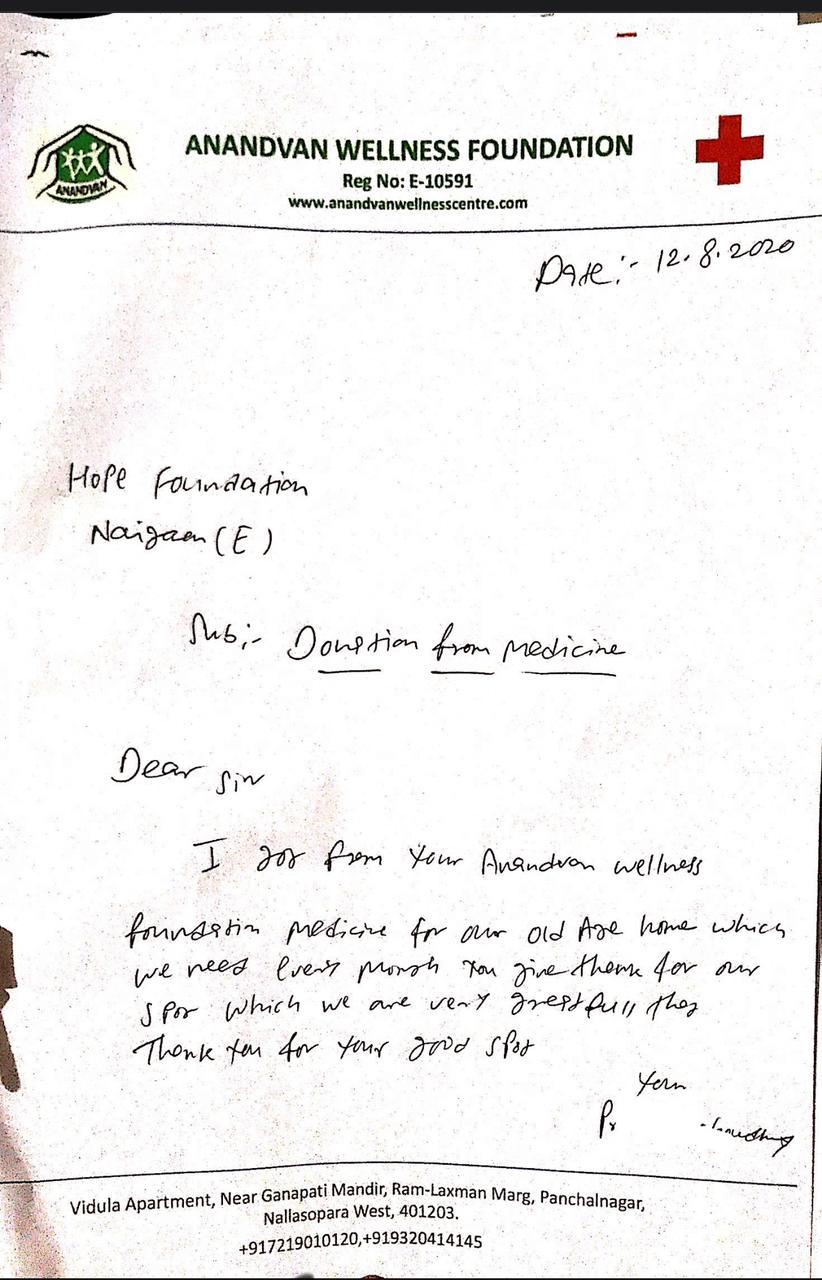 ANANDVAN
ANANDVAN WELLNESS FOUNDATION
Reg No: E-10591
www.anandvanwellnesscentre.com
Date:- 12.8.2020
Hope Foundation
Naigaon (E)
Sub:- Donation from medicine
Dear Sir
I got from your Anandvan wellness
foundation medicine for our old Age home which
we need every month you give them for our
which we are very
Thank you for your good
Your
Vidula Apartment, Near Ganapati Mandir, Ram-Laxman Marg, Panchalnagar,
Nallasopara West, 401203.
+917219010120,+919320414145